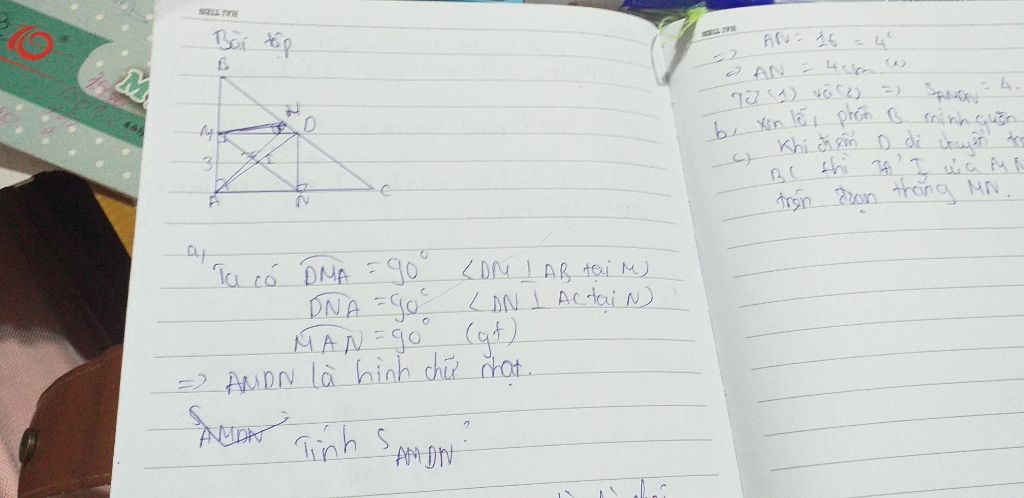 Bài tập
B
M
H
D
3
A
N
C
a,
Ta có DMA = 90° (DM ⊥ AB tại M)
DNA = 90° (DN ⊥ AC tại N)
MAN = 90° (gt)
=> AMDN là hình chữ nhật.
S AMDN
Tính S AMDN ?
=> AN = 16 = 4²
=> AN = 4cm (2)
Từ (1) và (2) => S AMDN = 4.
b, xin lỗi, phần B mình quên
c, Khi điểm D di chuyển
BC thì I của MN
trên đoạn thẳng MN.